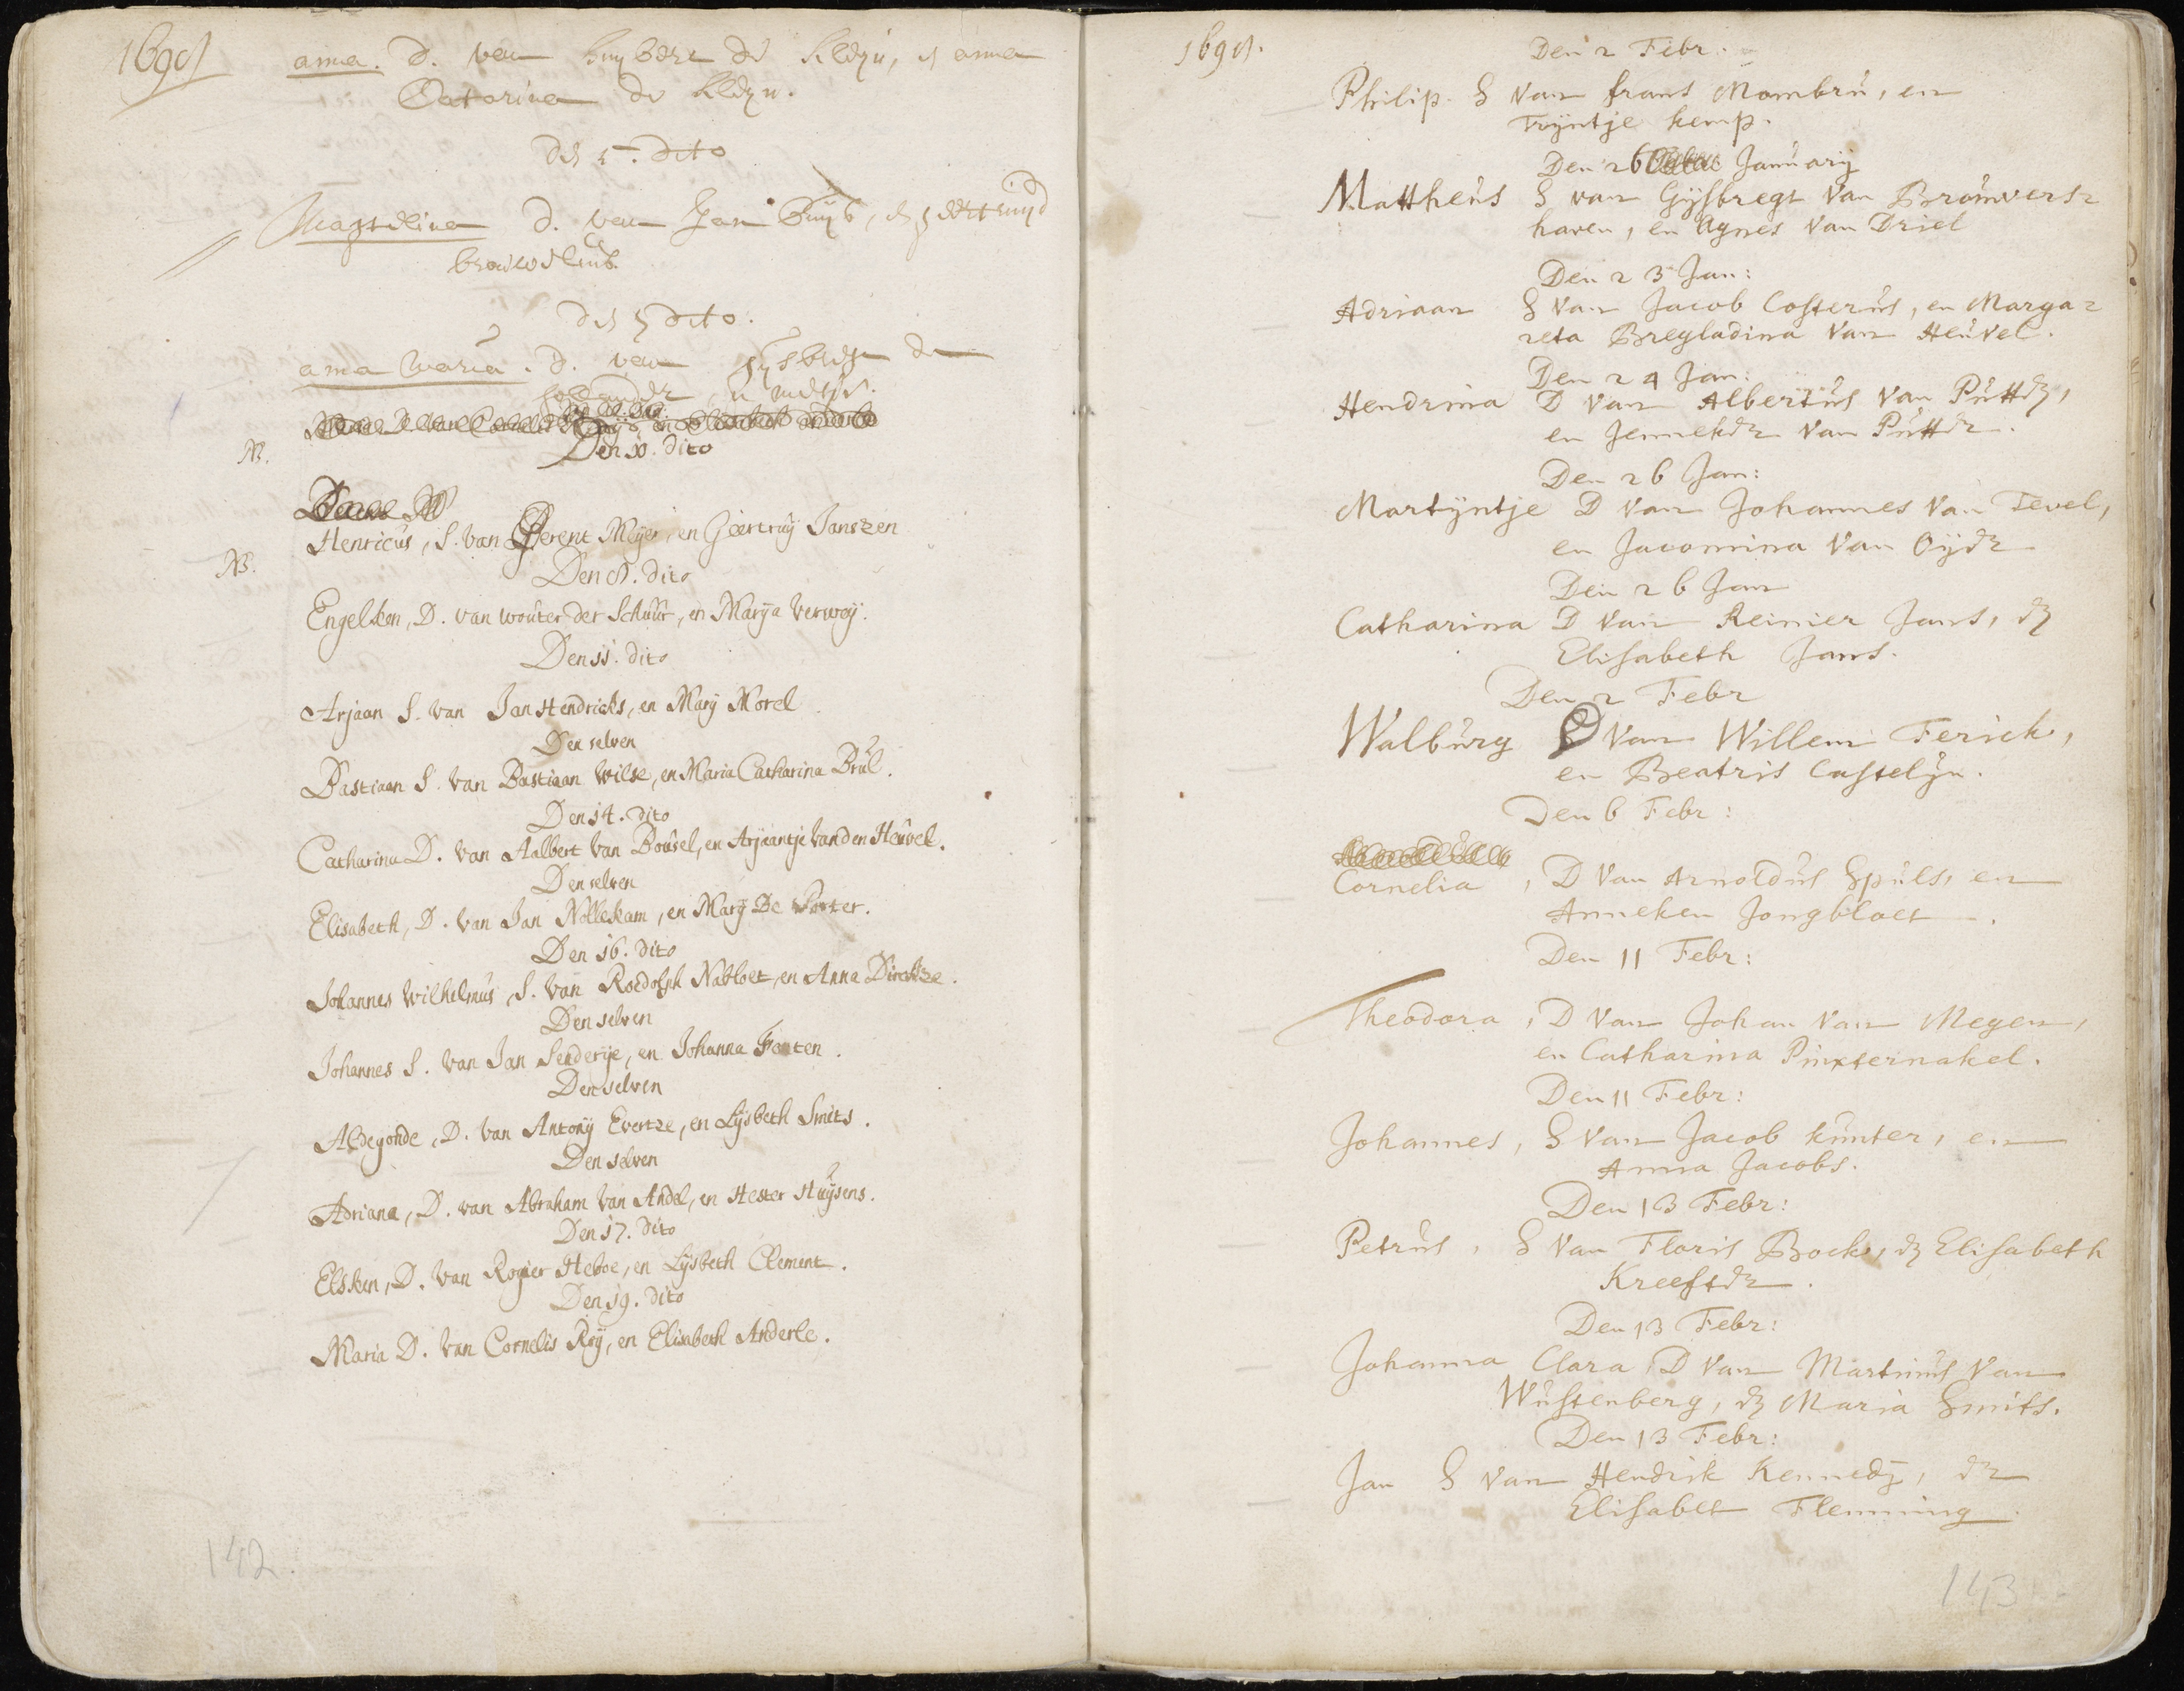 1691
anna. D. van huybert de kleyn, en anna
Catarina de kleyn.
den 5. dito
Magdelina D. van Jan Buys, en geertruyd
den 5 dito.
anna maria. D. van gysbregt
N.
Den 10. dito
Henricus, S. van Gerent Meyer, en Geertruÿ Janszen
N.
Den 8. dito
Engelken, D. van wouter der Schuur, en Marÿa Verweÿ.
Den 11. dito
Arjaan S. van Jan Hendricks, en Marÿ Morel
Den selven
Bastiaan S. van Bastiaan Wilse, en Maria Catharina Brul.
Den 14. dito
Catharina D. van Aalbert van Bousel, en Arjaantje van den Heuvel.
Den selven
Elisabeth, D. van Jan Nollekam, en Marÿ De Porter.
Den 16. dito
Johannes Wilhelmus, S. van Roedolph Nabloet, en Anna Dirckze.
Den selven
Johannes S. van Jan Senderÿe, en Johanna Fonten.
Den selven
Aldegonde, D. van Antonÿ Evertze, en Lÿsbeth Smits.
Den selven
Adriana, D. van Abraham van Andel, en Hester Huÿsens.
Den 17. dito
Elsken, D. van Rogier Heboe, en Lÿsbeth Clement.
Den 19. dito
Maria D. van Cornelis Roÿ, en Elisabeth Anderle.
142.
1691.
Den 2 Febr.
Philip. S van frans Mombru, en
Trÿntje kemp.
Den 26 Januarÿ
Mattheus S van Gÿsbregt van Brouwers=
haven, en Agnes van Driel
Den 23 Jan:
Adriaan S van Jacob Costerus, en Marga=
reta Bregladina van Heuvel.
Den 24 Jan:
Hendrina D van Albertus van Putten,
en Jenneken van Putten.
Den 26 Jan:
Martÿntje D van Johannes van Tevel,
en Jacomina van Oÿen
Den 26 Jan
Catharina D van Reinier Jans, en
Elisabeth Jans.
Den 2 Febr
Walburg D van Willem Ferick,
en Beatris Castelÿn.
Den 6 Febr:
Cornelia, D van Arnoldus Spuls, en
Anneken Jongbloet.
Den 11 Febr:
Theodora, D van Johan van Megen,
en Catharina Pinxternakel.
Den 11 Febr:
Johannes, S van Jacob kunter, en
Anna Jacobs.
Den 13 Febr:
Petrus, S van Floris Bock, en Elisabeth
Kreeften.
Den 13 Febr:
Johanna Clara D van Martinus van
Wustenberg, en Maria Smits.
Den 13 Febr:
Jan S van Hendrik Kennedÿ, en
Elisabet Flemming.
143